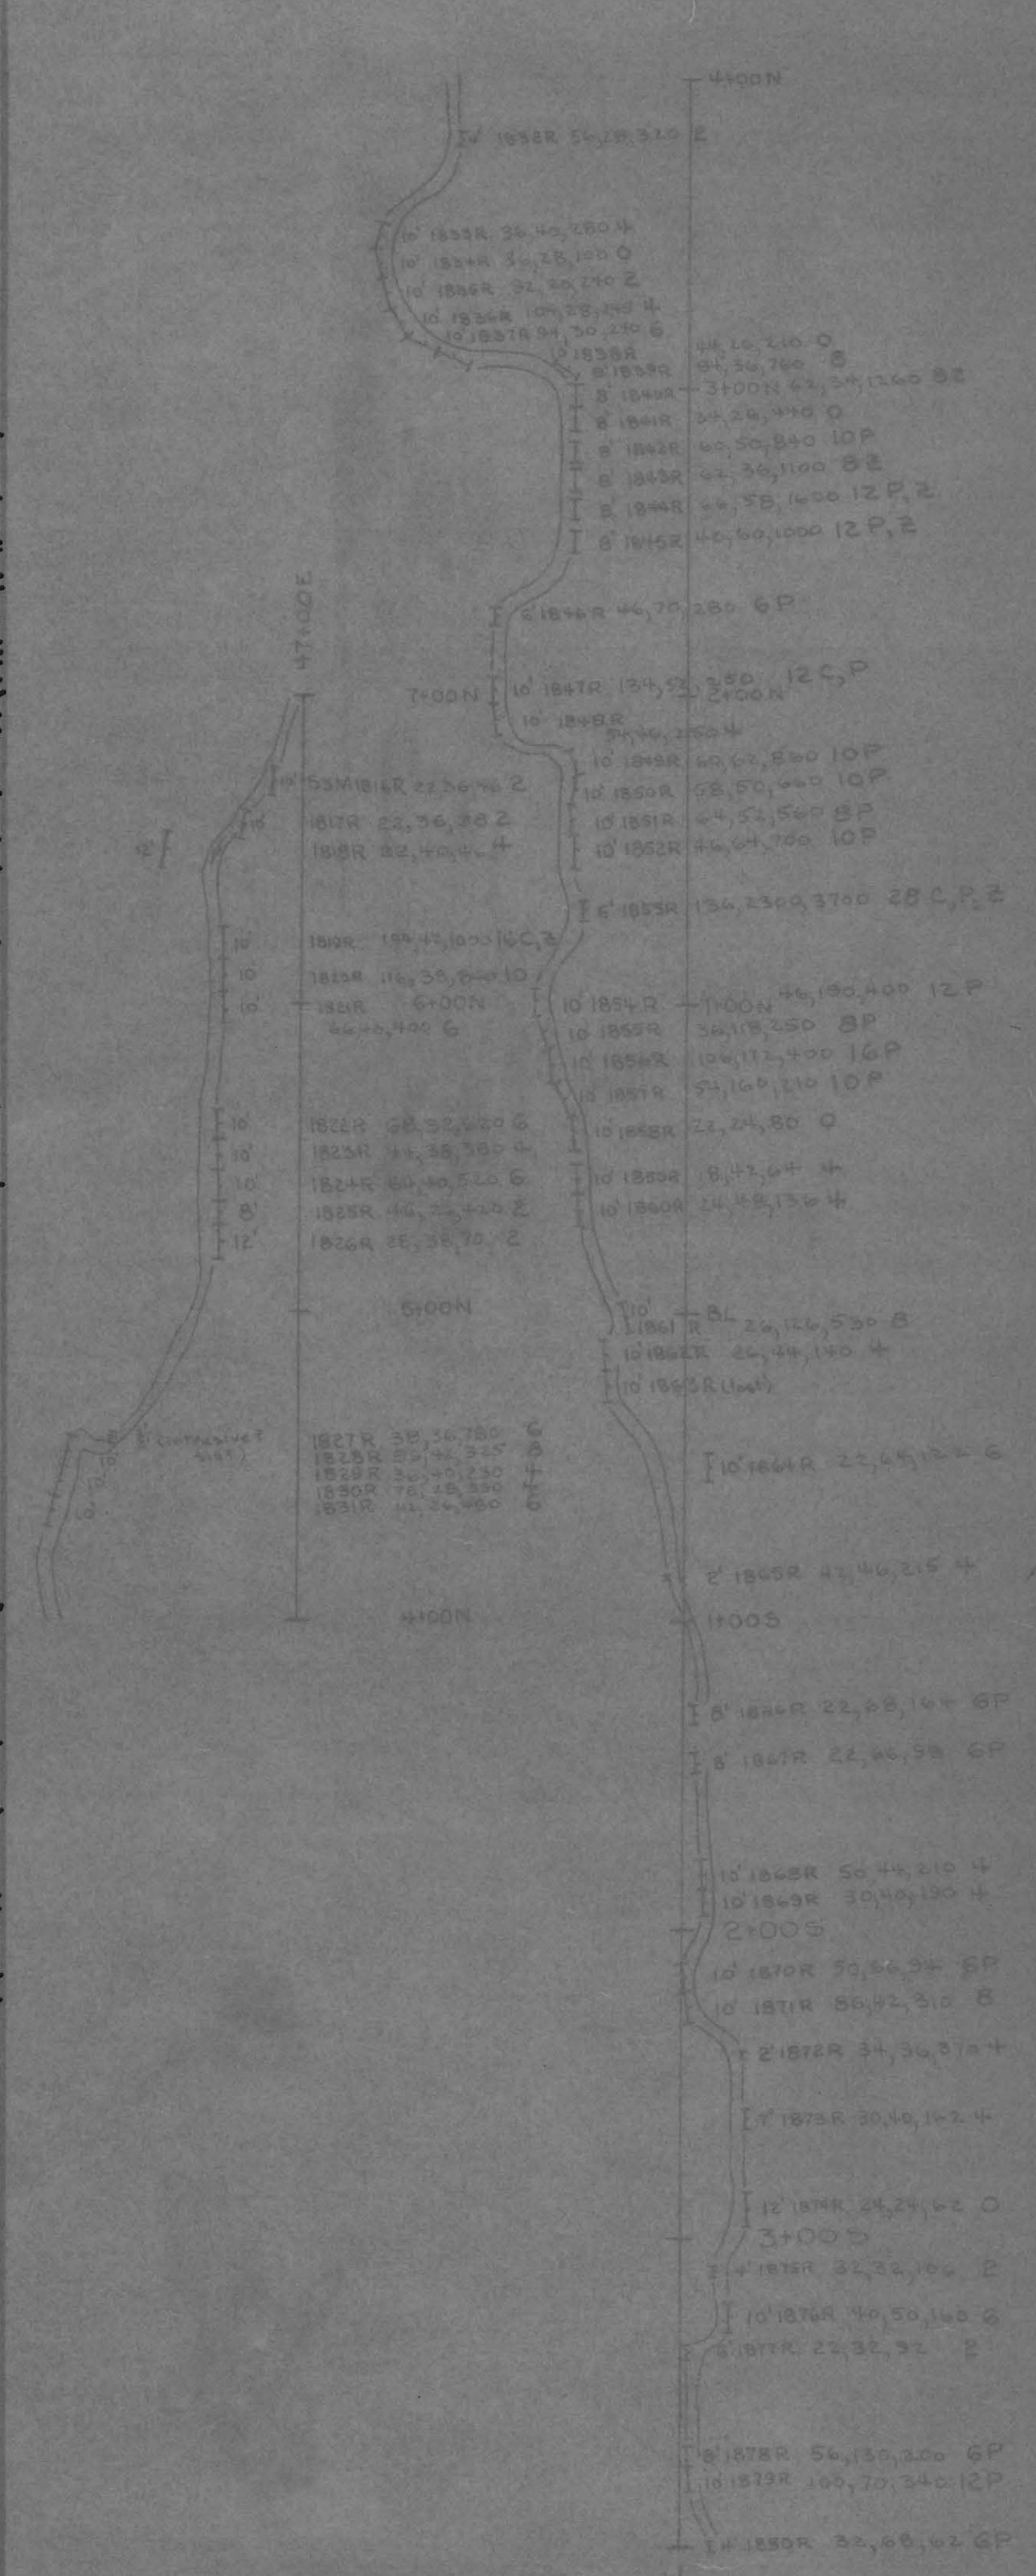 4+00N
1832R 56,28,320 2
10' 1833R 36,40,280 4
10' 1834R 36,28,190 0
10' 1835R 32,20,270 2
10' 1836R 104,28,245 4
10' 1837R 94,30,230 6
10' 1838R 44,26,210 0
8' 1839R 84,36,760 8
8' 1840R 3+00N 62,34,1260 8Z
8' 1841R 34,26,440 0
8' 1842R 60,50,840 10P
8' 1843R 62,36,1100 8Z
8' 1844R 66,58,1600 12 P,Z
8' 1845R 40,60,1000 12 P,Z
6' 1846R 46,70,280 6P
10' 1847R 134,52,250 12 C,P
2+00N
10' 1848R
34,46,250 4
10' 1849R 60,62,830 10P
10' 1850R 58,50,660 10P
10' 1851R 64,52,560 8P
10' 1852R 46,64,700 10P
6' 1853R 136,2300,3700 28 C,P,Z
10' 1854R 1+00N 46,190,400 12P
10' 1855R 36,118,250 8P
10' 1856R 106,172,400 16P
10' 1857R 54,160,210 10P
10' 1858R 22,24,80 0
10' 1859R 18,42,64 4
10' 1860R 24,48,136 4
10' 1861R BL 26,126,530 8
10' 1862R 26,44,140 4
10' 1863R (lost)
10' 1864R 22,64,122 6
2' 1865R 42,46,215 4
1+00S
8' 1866R 22,68,164 6P
8' 1867R 22,66,98 6P
10' 1868R 50,44,210 4
10' 1869R 30,40,190 4
2+00S
10' 1870R 50,66,94 6P
10' 1871R 86,42,310 8
2' 1872R 34,36,370 4
7' 1873R 30,40,142 4
12' 1874R 24,24,62 0
3+00S
4' 1875R 32,32,106 2
10' 1876R 40,50,160 6
6' 1877R 22,32,92 2
8' 1878R 56,130,200 6P
10' 1879R 100,70,340 12P
4' 1880R 32,68,62 6P
47+00E
7+00N
10' 53M1816R 22,36,46 2
10' 1817R 22,36,38 2
12' 1818R 22,40,46 4
10' 1819R 16C,Z
10' 1820R 116,38,840 10
10' 1821R 6+00N
66,40,400 6
10' 1822R 68,32,620 6
10' 1823R 44,38,380 4
10' 1824R 64,40,520 6
8' 1825R 46,420 2
12' 1826R 28,38,70 2
5+00N
8' (intrusive?
1827R 38,36,780 6
10' 1828R 86,42,325 8
10' 1829R 36,40,230 4
10' 1830R 78,28,350 4
1831R 42,26,480 6
4+00N